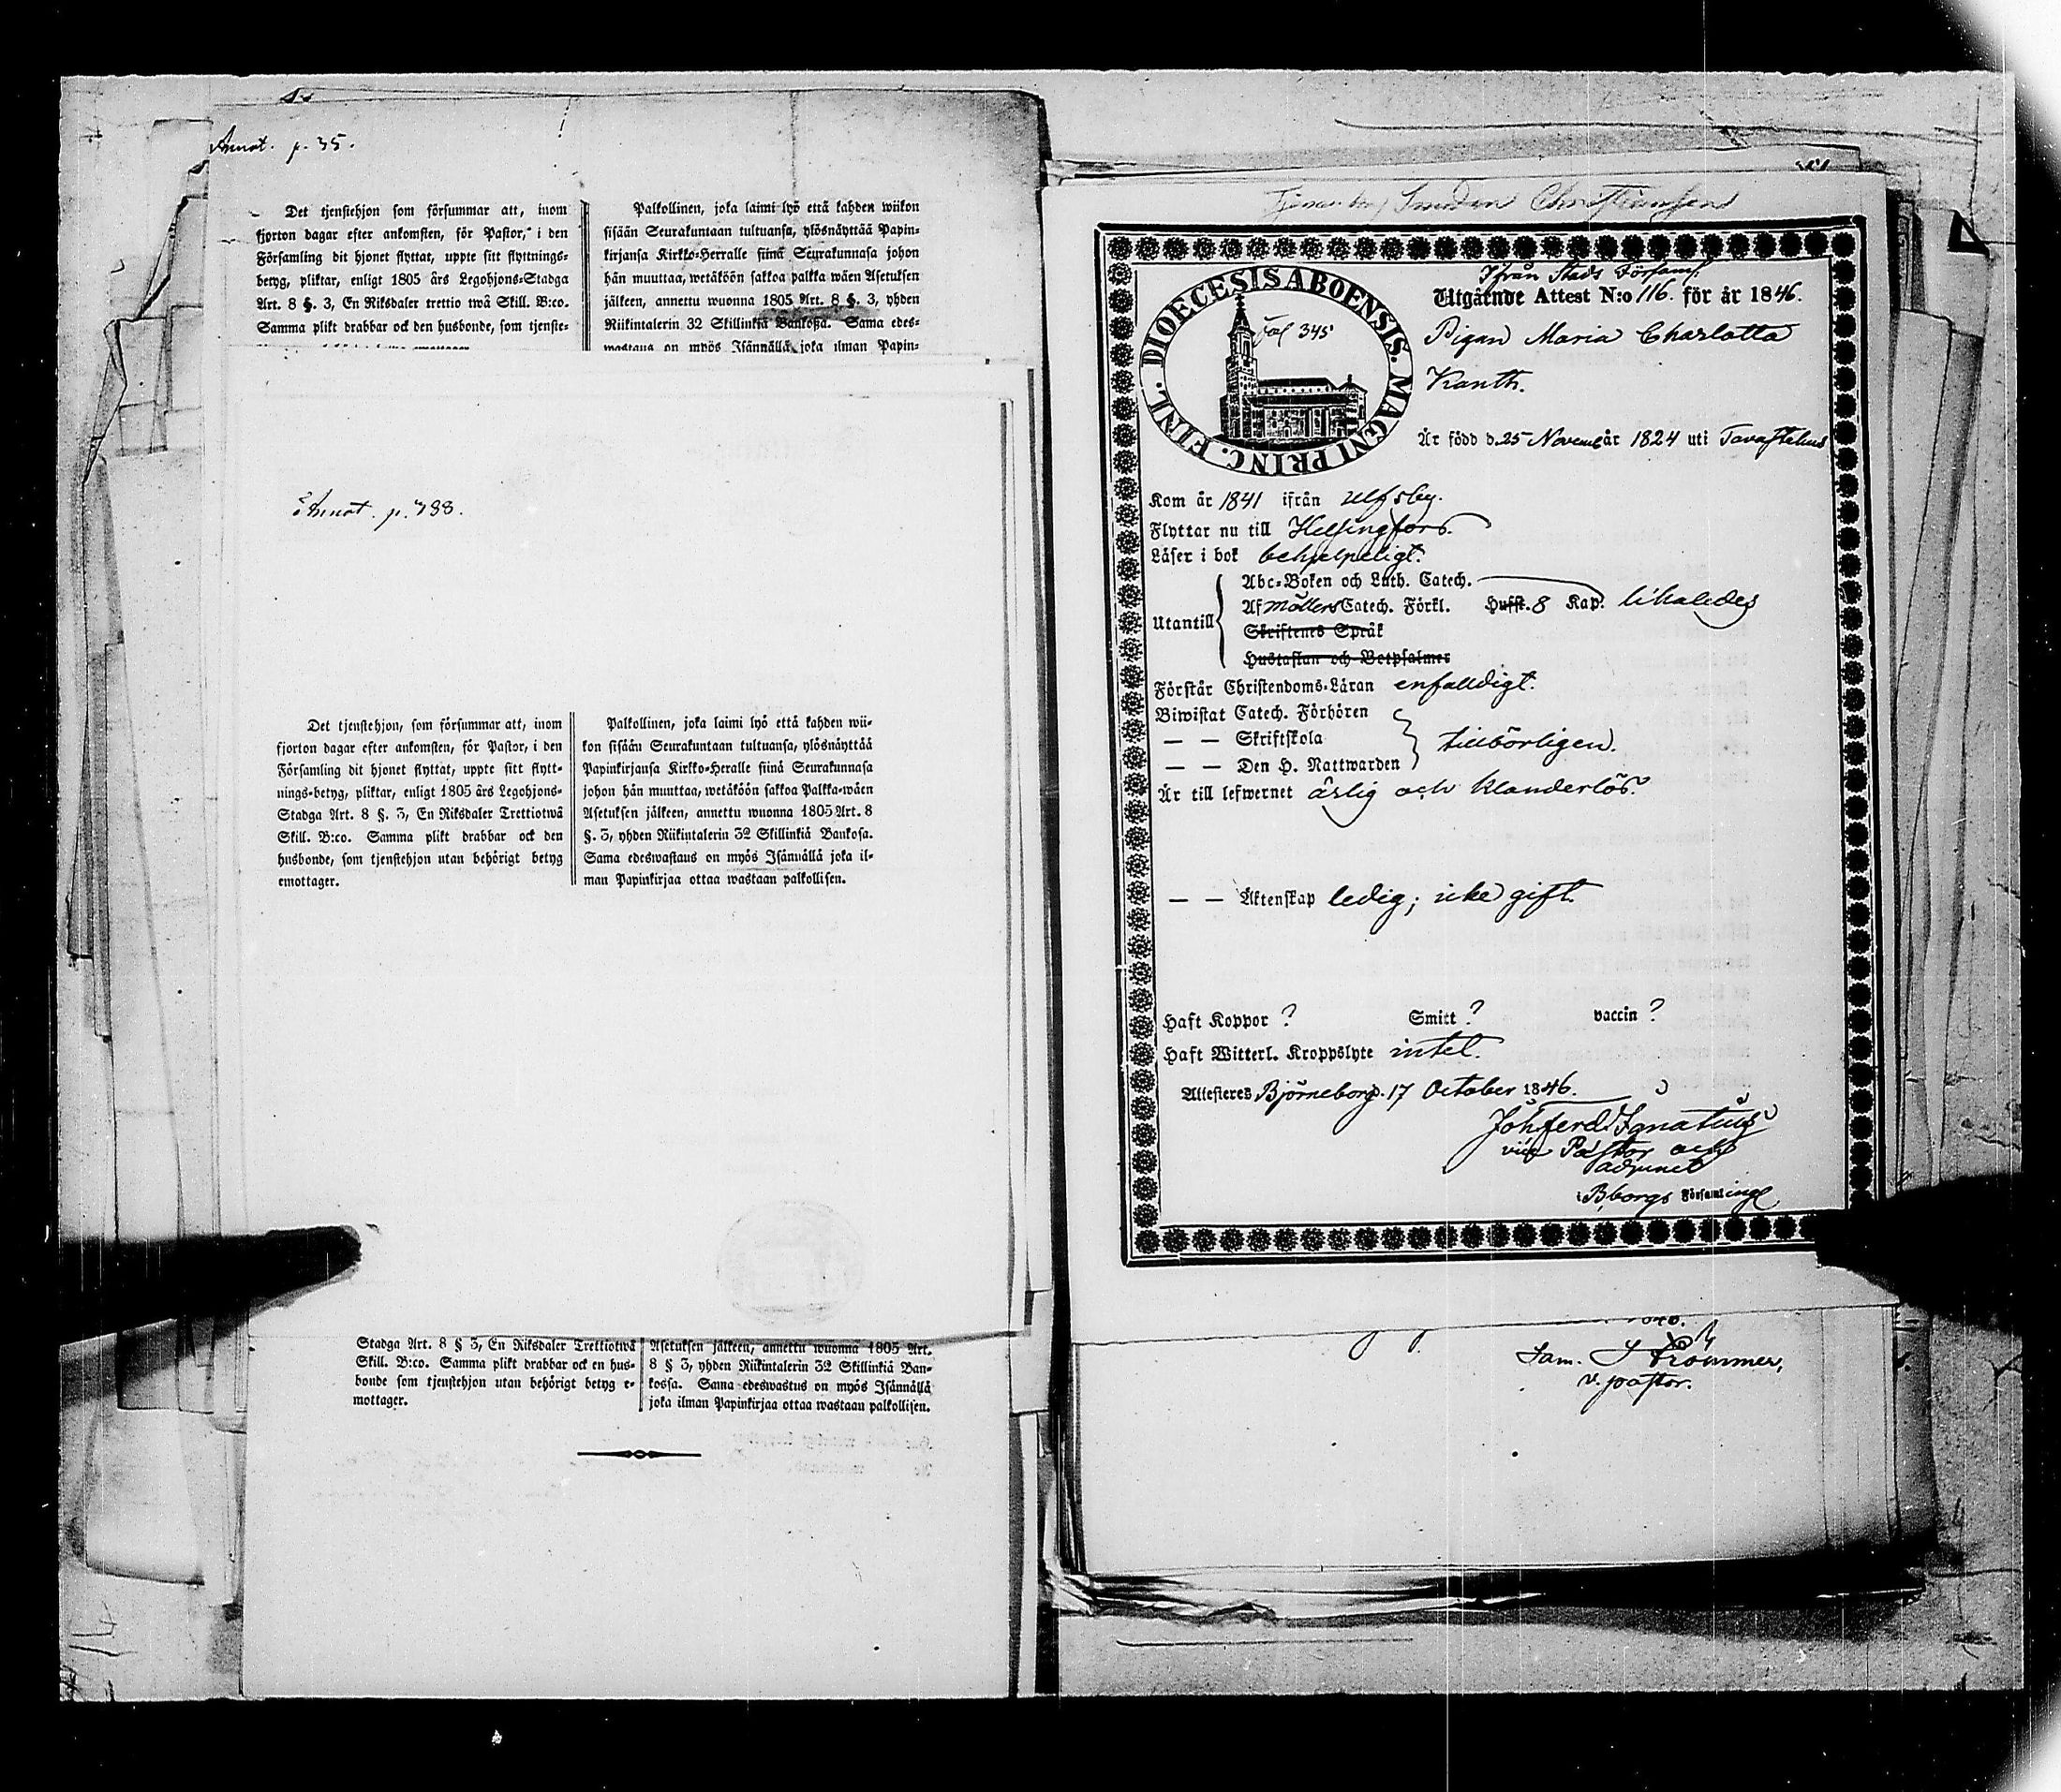 Annot. p. 35.
Det tjenstehjon som försummar att, inom
fjorton dagar efter ankomsten, för Pastor, i den
Församling dit hjonet flyttat, uppte sitt flyttnings-
betyg, pliktar, enligt 1805 års Legohjons-Stadga
Art. 8 §. 3, En Riksdaler trettio twå Skill. B:co.
Samma plikt drabbar ock den husbonde, som tjenste-
Palkollinen, joka laimi lyö että kahden wiikon
sisään Seurakuntaan tultuansa, ylösnäyttää Papin-
kirjansa Kirkko-Herralle siinä Seurakunnasa johon
hän muuttaa, wetäköön sakkoa palkka wäen Asetuksen
jälkeen, annettu wuonna 1805 Art. 8 §. 3, yhden
Riikintalerin 32 Skillinkiä Bankoßa. Sama edes-
wastaus on myös Isännällä, joka ilman Papin-
Annot. p. 788.
Det tjenstehjon, som försummar att, inom
fjorton dagar efter ankomsten, för Pastor, i den
Församling dit hjonet flyttat, uppte sitt flytt-
nings-betyg, pliktar, enligt 1805 års Legohjons-
Stadga Art. 8 §. 3, En Riksdaler Trettiotwå
Skill. B:co. Samma plikt drabbar ock den
husbonde, som tjenstehjon utan behörigt betyg
emottager.
Palkollinen, joka laimi lyö että kahden wii-
kon sisään Seurakuntaan tultuansa, ylösnäyttää
Papinkirjansa Kirkko-Heralle siinä Seurakunnasa
johon hän muuttaa, wetäköön sakkoa Palkka-wäen
Asetuksen jälkeen, annettu wuonna 1805 Art. 8
§. 3, yhden Riikintalerin 32 Skillinkiä Bankosa.
Sama edeswastaus on myös Isännällä joka il-
man Papinkirjaa ottaa wastaan palkollisen.
Stadga Art. 8 § 3, En Riksdaler Trettiotwå
Skill. B:co. Samma plikt drabbar ock en hus-
bonde som tjenstehjon utan behörigt betyg e-
mottager.
Asetuksen jälkeen, annettu wuonna 1805 Art.
8 § 3, yhden Riikintalerin 32 Skillinkiä Ban-
kossa. Sama edeswastus on myös Isännällä
joka ilman Papinkirjaa ottaa wastaan palkollisen.
Smeden Christiansen
DIOECESIS ABOENSIS. MAGNI PRINC. FINL.
Fol 345
Ifrån Stads Församl.
Utgående Attest N:o 116. för år 1846.
Pigan Maria Charlotta
Kanth.
Är född d. 25 Novemb år 1824 uti Tavastehus
Kom år 1841 ifrån Ulfsby.
Flyttar nu till Helsingfors.
Läser i bok behjelpeligt.
Utantill
Abc-Boken och Luth. Catech.
Af Möllers Catech. Förkl. Husst. 8 Kap. likaledes
Skriftenes Språk
Hustaflan och Botpsalmer
Förstår Christendoms-Läran enfalldigt.
Biwistat Catech. Förhören
— — Skriftskola tillbörligen.
— — Den H. Nattwarden
Är till lefwernet ärlig och klanderlös.
— — Äktenskap ledig; icke gift.
Haft Koppor ? Smitt ? vaccin ?
Haft Witterl. Kroppslyte intet.
Attesteres Björneborg d. 17 October 1846.
Joh Ferd Ignatius
vice Pastor och
adjunct
i B,borgs Församling
Sam.
v. pastor.